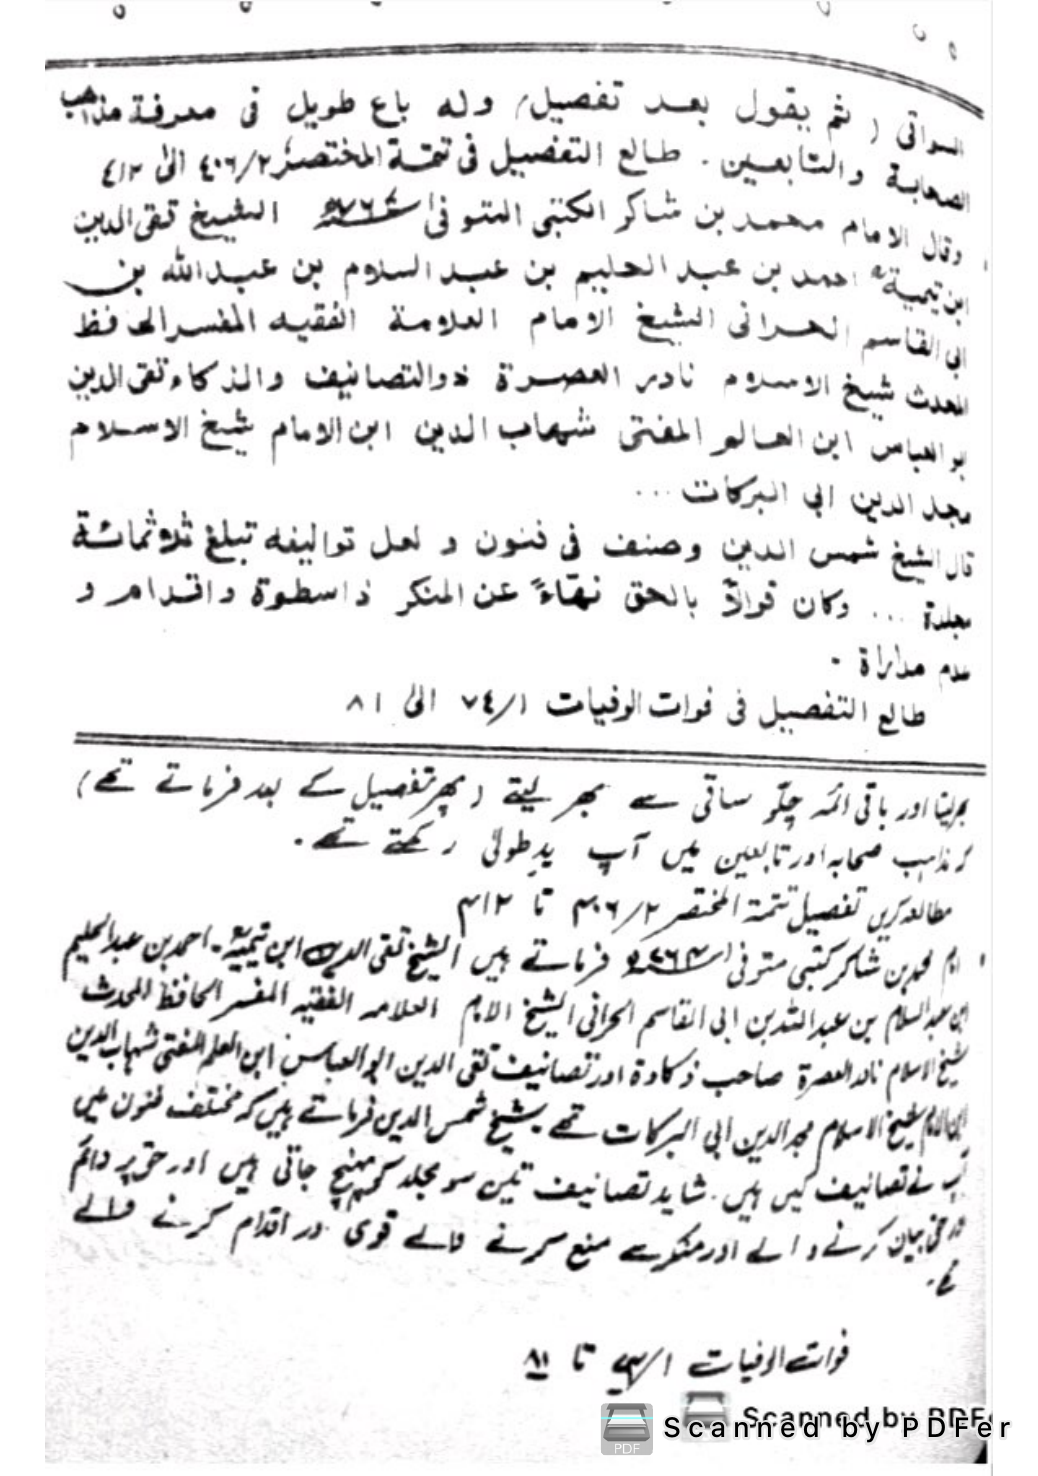 السواقی ( ثم یقول بعد تفصیل) وله باع طویل فی معرفة مذاهب
الصحابة والتابعین . طالع التفصیل فی تتمة المختصر ٤٠٦/٢ الیٰ ٤١٢
وقال الامام محمد بن شاکر الکتبی المتوفی الشیخ تقی الدین
ابن تیمیة احمد بن عبد الحلیم بن عبد السلام بن عبد الله بن
ابی القاسم الحرانی الشیخ الامام العلامة الفقیه المفسر الحافظ
المحدث شیخ الاسلام نادر العصرة ذوالتصانیف والذکاء تقی الدین
بو العباس ابن العالم المفتی شهاب الدین ابن الامام شیخ الاسلام
مجد الدین ابی البرکات ...
قال الشیخ شمس الدین وصنف فی فنون و لعل توالیفه تبلغ ثلاثمائة
مجلدة ... وکان قوالاً بالحق نهّاءً عن المنکر ذا سطوة و اقدام و
عدم مداراة .
طالع التفصیل فی فوات الوفیات ٧٤/١ الیٰ ٨١
بھر لینا اور باقی ائمہ چلّو ساقی سے بھر لیتے (پھر تفصیل کے بعد فرماتے تھے)
کہ مذاہب صحابہ اور تابعین میں آپ یدِ طولیٰ رکھتے تھے .
مطالعہ کریں تفصیل تتمۃ المختصر ۴۰۶/۲ تا ۴۱۲
امام محمد بن شاکر کتبی متوفی فرماتے ہیں الشیخ تقی الدین ابن تیمیہؒ ـ احمد بن عبد الحلیم
بن عبد السلام بن عبد اللہ بن ابی القاسم الحرانی الشیخ الامام العلامہ الفقیہ المفسر الحافظ المحدث
شیخ الاسلام نادر العصرۃ صاحب ذکاوۃ اور تصانیف تقی الدین ابو العباس ابن المفتی شہاب الدین
ابن الامام شیخ الاسلام مجد الدین ابی البرکات تھے . شیخ شمس الدین فرماتے ہیں کہ مختلف فنون میں
آپ نے تصانیف کیں ہیں . شاید تصانیف تین سو مجلد تک پہنچ جاتی ہیں اور حق پر دائم
اور حق بیان کرنے والے اور منکر سے منع کرنے والے قوی اور اقدام کرنے والے
تھے .
فوات الوفیات ۷۴/۱ تا ۸۱
Scanned by PDFer
Scanned by PDFer
PDF